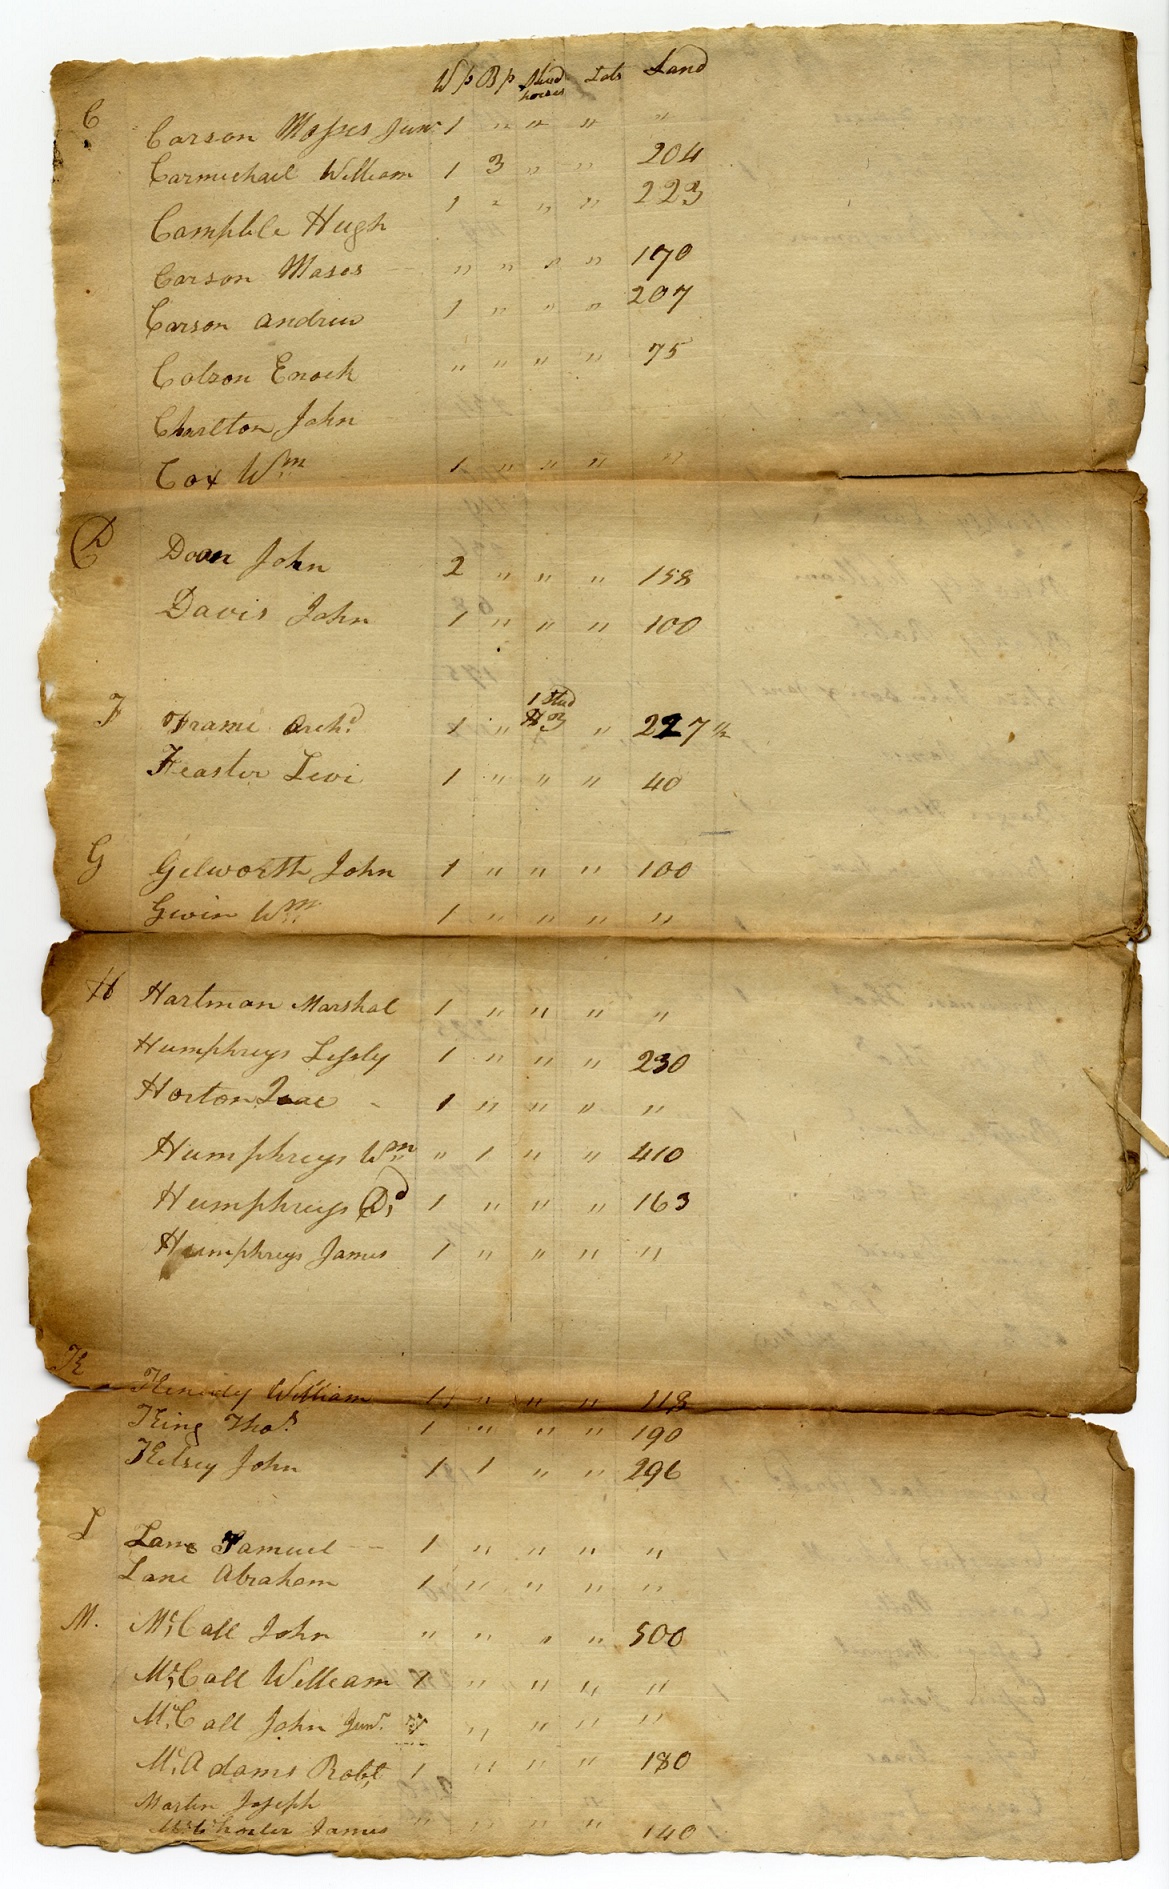 W p B p Stud horses Lots Land
C
Carson Moses Junr 1 " " " "
Carmichael William 1 3 " " 204
Campble Hugh 1 " " " 223
Carson Moses " " " " 170
Carson Andrew 1 " " " 207
Colson Enock " " " " 75
Charlton John
Cox Wm 1 " " " "
D Doan John 2 " " " 158
Davis John 1 " " " 100
1 Stud
F Frame Archd 1 " H 3 " 227 1/2
Feaster Levi 1 " " " 40
G Gilworth John 1 " " " 100
Gwin Wm 1 " " " "
H Hartman Marshal 1 " " " "
Humphreys Lessly 1 " " " 230
Horton Isaac - 1 " " " "
Humphreys Wm " 1 " " 410
Humphreys Dd 1 " " " 163
Humphreys James 1 " " " "
K
Kenedy William 1 " " " 118
King Thos 1 " " " 190
Kelsey John 1 1 " " 296
L Lane Samuel 1 " " " "
Lane Abraham 1 " " " "
M. McCall John " " " " 500
McCall William 1 " " " "
McCall John Junr " " " "
McAdams Robt 1 " " " 180
Martin Joseph
James " " " " 140